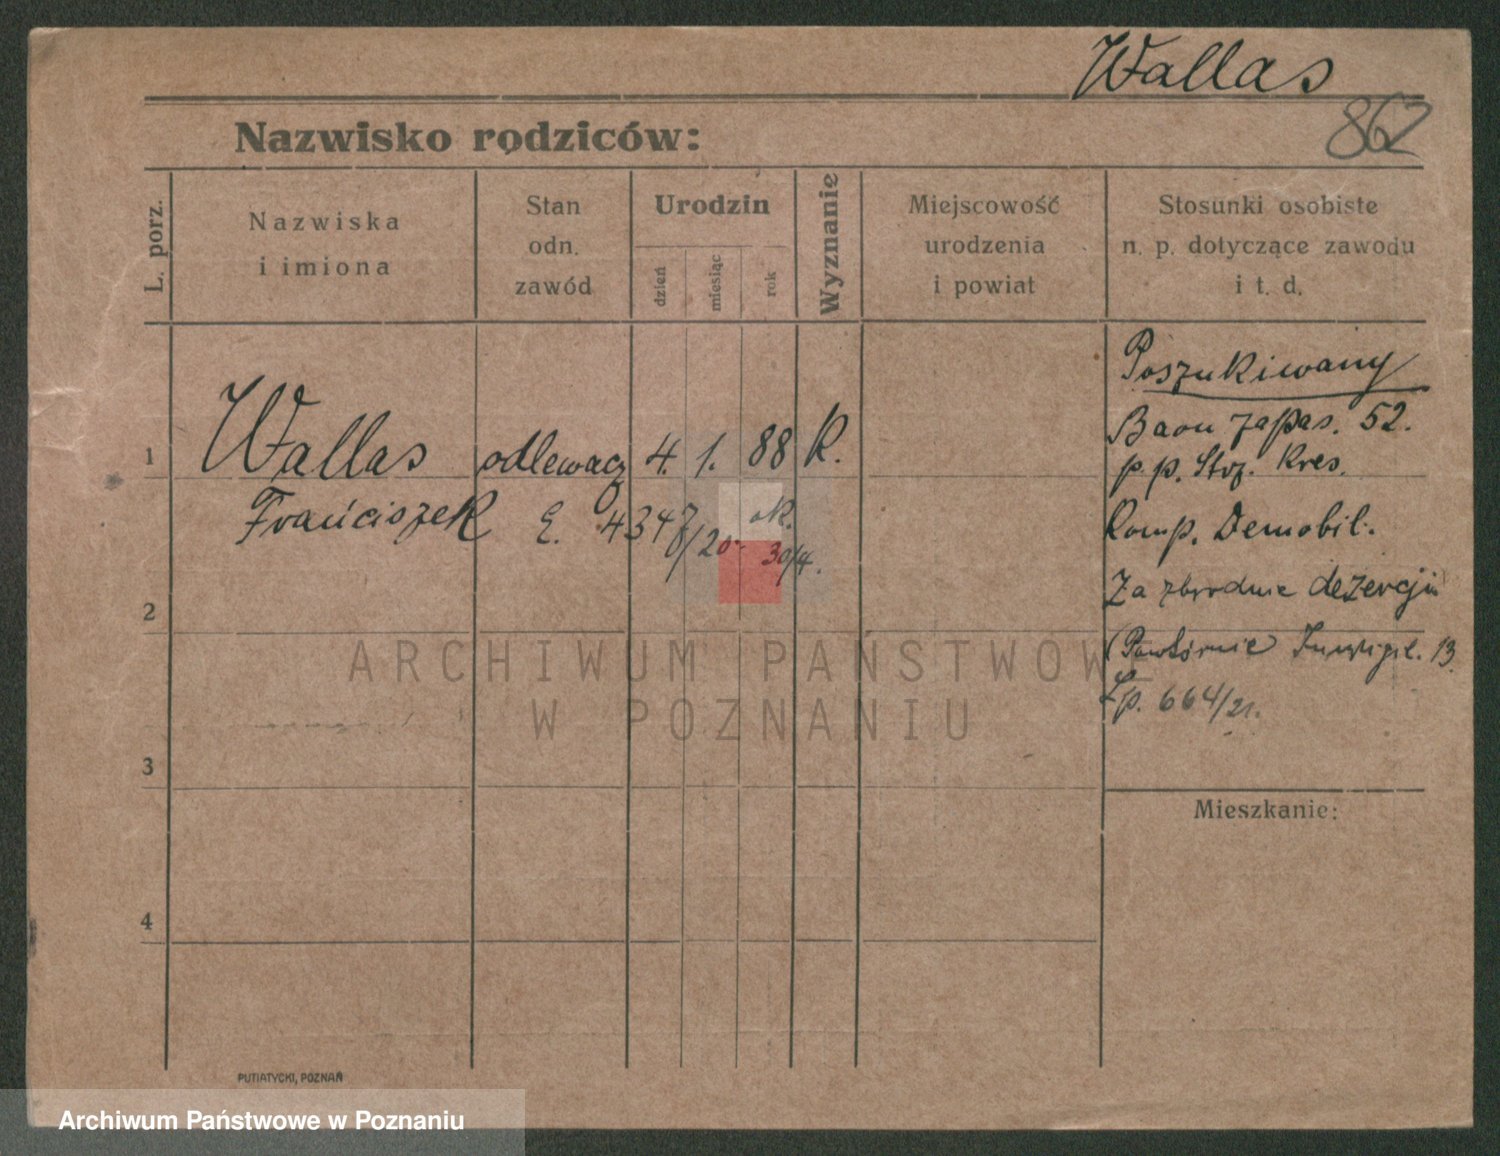 Wallas
862
Nazwisko rodziców:
L. porz.
Nazwiska
i imiona
Stan
odn.
zawód
Urodzin
dzień
miesiąc
rok
Wyznanie
Miejscowość
urodzenia
i powiat
Stosunki osobiste
n. p. dotyczące zawodu
i t. d.
1
Wallas odlewacz 4. 1. 88 K.
Franciszek E. 4347/20 ok. 30/4.
Poszukiwany
Baon zapas. 52.
p.p. Strz. Kres.
Komp. Demobil.
Za zbrodnie dezercji
(Powtórnie) 13
Lp. 664/21.
2
3
4
Mieszkanie:
ARCHIWUM PAŃSTWOWE
W POZNANIU
PUTIATYCKI, POZNAŃ
Archiwum Państwowe w Poznaniu